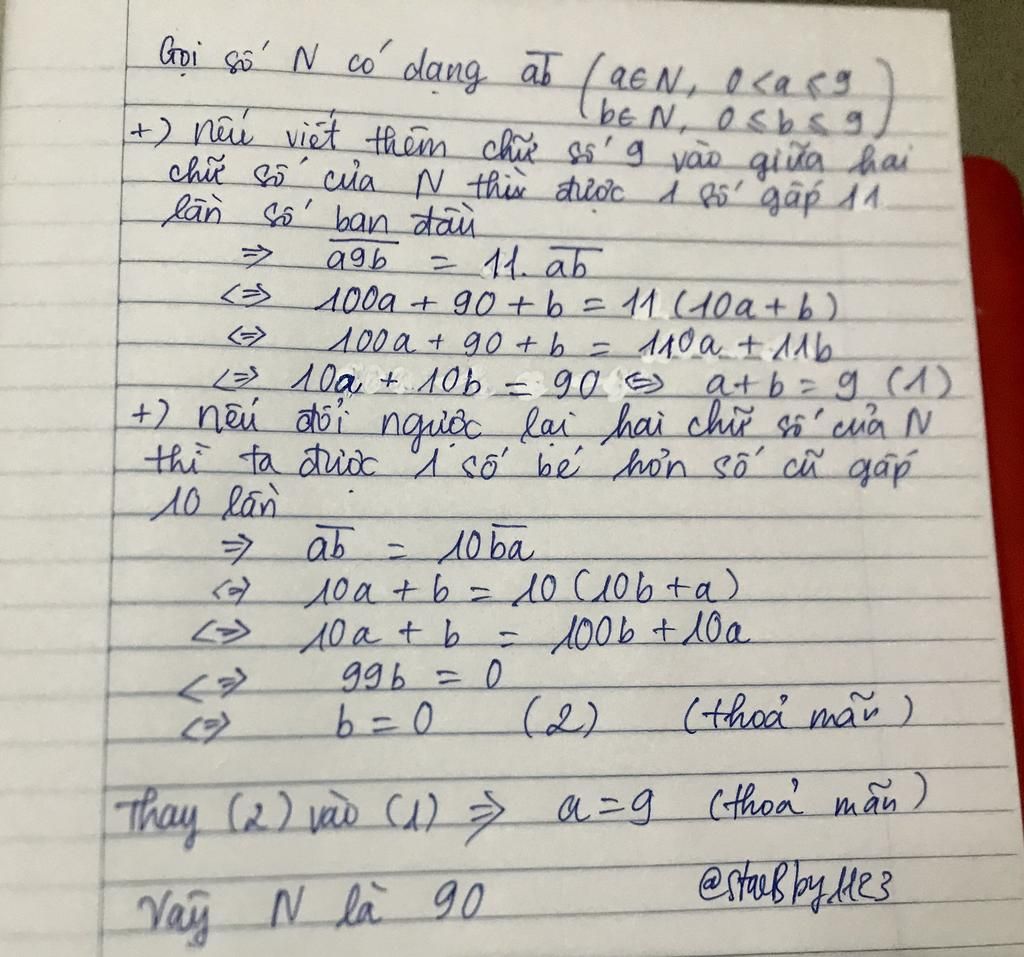 Gọi số N có dạng ab (a∈N, 0<a≤9
b∈N, 0≤b≤9)
+) nếu viết thêm chữ số 9 vào giữa hai
chữ số của N thì được 1 số gấp 11
lần số ban đầu
⇒ a9b = 11. ab
<=> 100a + 90 + b = 11 (10a + b)
<=> 100a + 90 + b = 110a + 11b
<=> 10a + 10b = 90 <=> a+b = 9 (1)
+) nếu đổi ngược lại hai chữ số của N
thì ta được 1 số bé hơn số cũ gấp
10 lần
⇒ ab = 10ba
<=> 10a + b = 10 (10b + a)
<=> 10a + b = 100b + 10a
<=> 99b = 0
<=> b = 0 (2) (thoả mãn)
Thay (2) vào (1) ⇒ a = 9 (thoả mãn)
Vậy N là 90